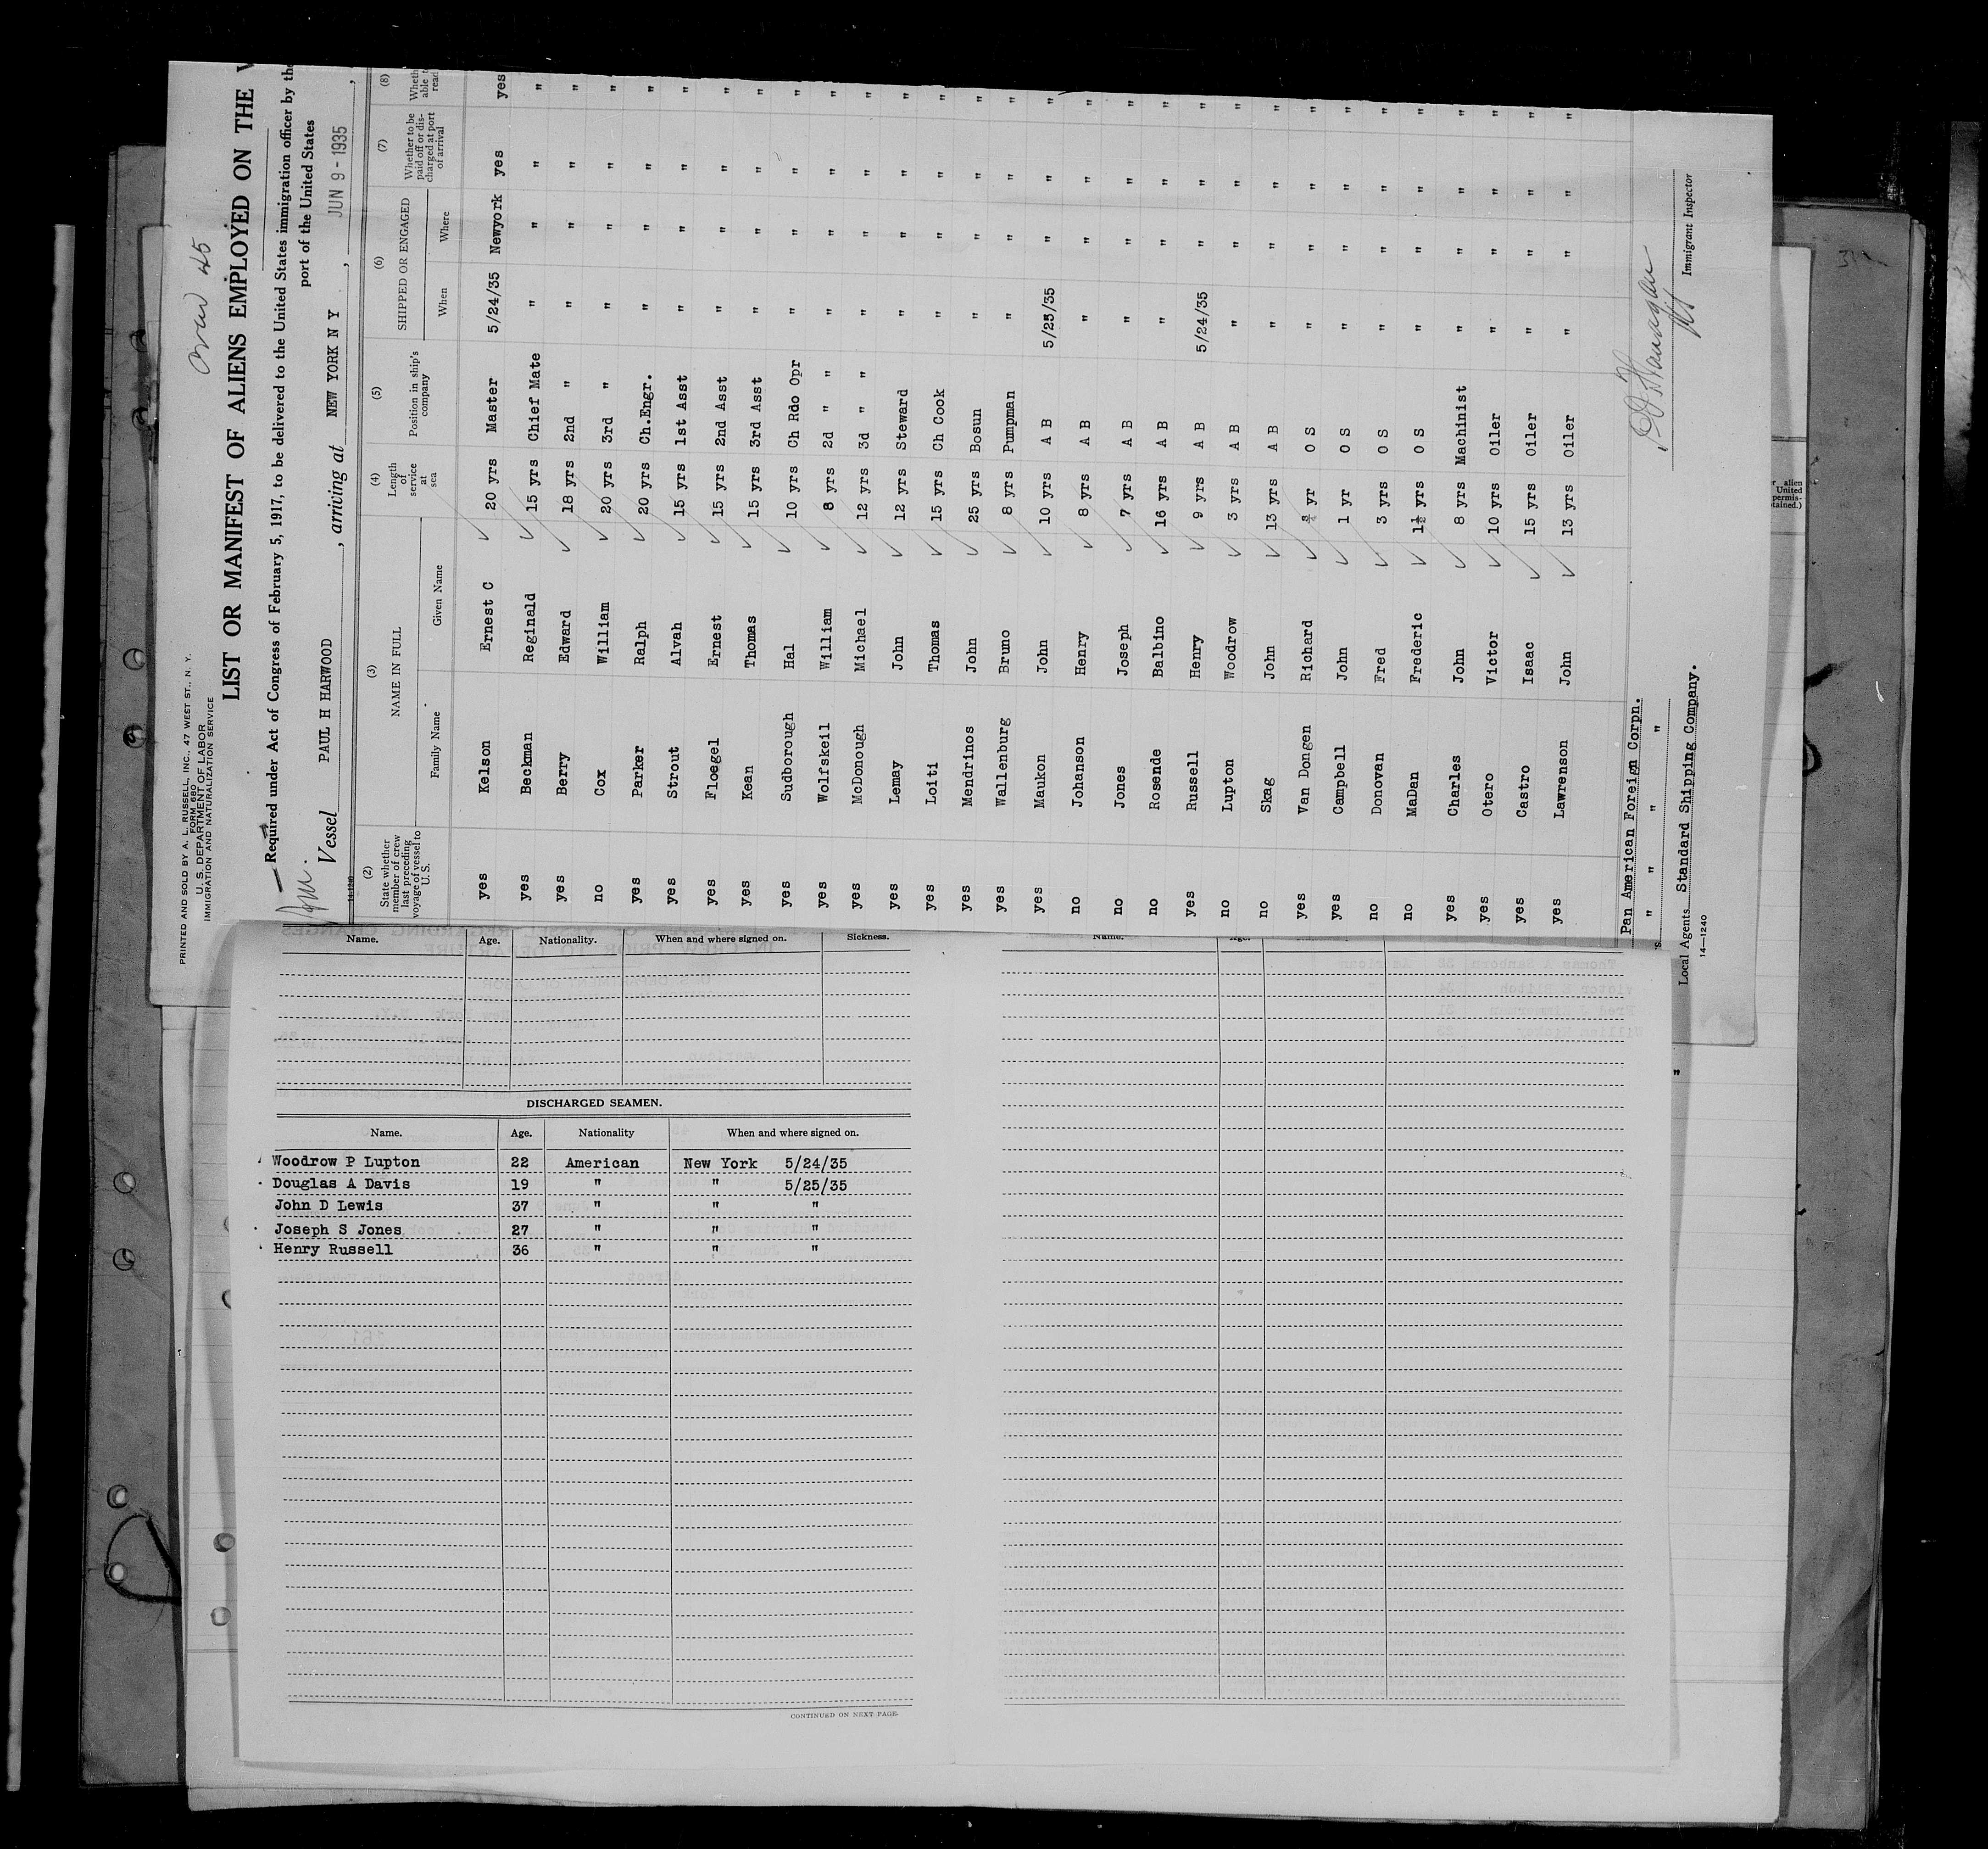 PRINTED AND SOLD BY A. L. RUSSELL, INC., 47 WEST ST., N. Y.
FORM 680
U. S. DEPARTMENT OF LABOR
IMMIGRATION AND NATURALIZATION SERVICE
LIST OR MANIFEST OF ALIENS EMPLOYED ON THE
Required under Act of Congress of February 5, 1917, to be delivered to the United States immigration officer by the
port of the United States
Vessel PAUL H HARWOOD , arriving at NEW YORK N Y , JUN 9 - 1935 ,
14-1240
(2) (3) (4) (5) (6) (7) (8)
State whether member of crew last preceding voyage of vessel to U. S. NAME IN FULL Length of service at sea Position in ship's company SHIPPED OR ENGAGED Whether to be paid off or discharged at port of arrival
Family Name Given Name When Where
yes Kelson Ernest C 20 yrs Master 5/24/35 Newyork yes yes
yes Beckman Reginald 15 yrs Chief Mate " " " "
yes Berry Edward 18 yrs 2nd " " " " "
no Cox William 20 yrs 3rd " " " " "
yes Parker Ralph 20 yrs Ch.Engr. " " " "
yes Strout Alvah 15 yrs 1st Asst " " " "
yes Floegel Ernest 15 yrs 2nd Asst " " " "
yes Kean Thomas 15 yrs 3rd Asst " " " "
yes Sudborough Hal 10 yrs Ch Rdo Opr " " " "
yes Wolfskeil William 8 yrs 2d " " " " " "
yes McDonough Michael 12 yrs 3d " " " " " "
yes Lemay John 12 yrs Steward " " " "
yes Loiti Thomas 15 yrs Ch Cook " " " "
yes Mendrinos John 25 yrs Bosun " " " "
yes Wallenburg Bruno 8 yrs Pumpman " " " "
yes Maukon John 10 yrs A B 5/25/35 " " "
no Johanson Henry 8 yrs A B " " " "
no Jones Joseph 7 yrs A B " " " "
no Rosende Balbino 16 yrs A B " " " "
yes Russell Henry 9 yrs A B 5/24/35 " " "
no Lupton Woodrow 3 yrs A B " " " "
no Skag John 13 yrs A B " " " "
yes Van Dongen Richard yr O S " " " "
yes Campbell John 1 yr O S " " " "
no Donovan Fred 3 yrs O S " " " "
no MaDan Frederic 1½ yrs O S " " " "
yes Charles John 8 yrs Machinist " " " "
yes Otero Victor 10 yrs Oiler " " " "
yes Castro Isaac 15 yrs Oiler " " " "
yes Lawrenson John 13 yrs Oiler " " " "
Pan American Foreign Corpn.
" " " "
Local Agents Standard Shipping Company.
14—1240
Immigrant Inspector
Name. Age. Nationality. When and where signed on. Sickness.
DISCHARGED SEAMEN.
Name. Age. Nationality When and where signed on.
Woodrow P Lupton 22 American New York 5/24/35
Douglas A Davis 19 " " 5/25/35
John D Lewis 37 " " "
Joseph S Jones 27 " " "
Henry Russell 36 " " "
CONTINUED ON NEXT PAGE.